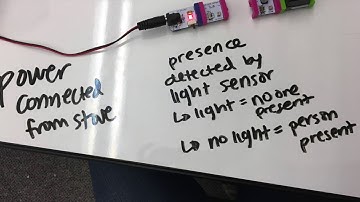 power
connected
from stove
presence
detected by
light sensor
↳ light = no one
present
↳ no light = person
present